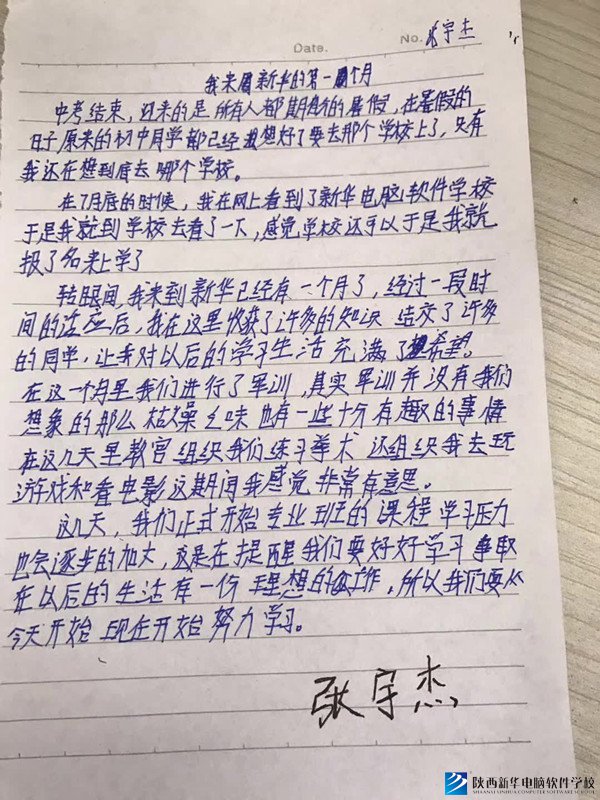 Date.
No. 张宇杰
我来到新华的第一个月
中考结束,迎来的是所有人都期盼的暑假,在暑假的
日子原来的初中同学都已经想好了要去那个学校上了,只有
我还在想到底去哪个学校。
在7月底的时候,我在网上看到了新华电脑软件学校
于是我就到学校去看了一下,感觉学校还可以于是我就
报了名来上学了
转眼间,我来到新华已经有一个月了,经过一段时
间的适应后,我在这里收获了许多的知识 结交了许多
的同学,让我对以后的学习生活充满了希望。
在这一个月里我们进行了军训,其实军训并没有我们
想象的那么枯燥乏味也有一些十分有趣的事情
在这几天里教官组织我们练习拳术 还组织我去玩
游戏和看电影这期间我感觉非常有意思。
这几天,我们正式开始专业班的课程学习压力
也会逐步的加大,这是在提醒我们要好好学习争取
在以后的生活有一份理想的工作,所以我们要从
今天开始 现在开始努力学习。
张宇杰
陕西新华电脑软件学校
SHAANXI XINHUA COMPUTER SOFTWARE SCHOOL